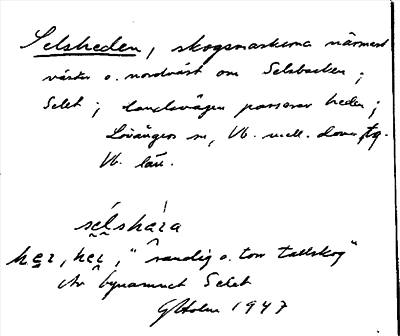 Selsheden, skogsmarkerna närmast
väster o. nordväst om Selsbacken;
Selet; landsvägen passerar heden;
Lövångers sn, Vb. mell. doms tg.
Vb. län.
sélshàra
her, her, "sandig o. torr tallskog"
Av bynamnet Selet
GHolm 1947